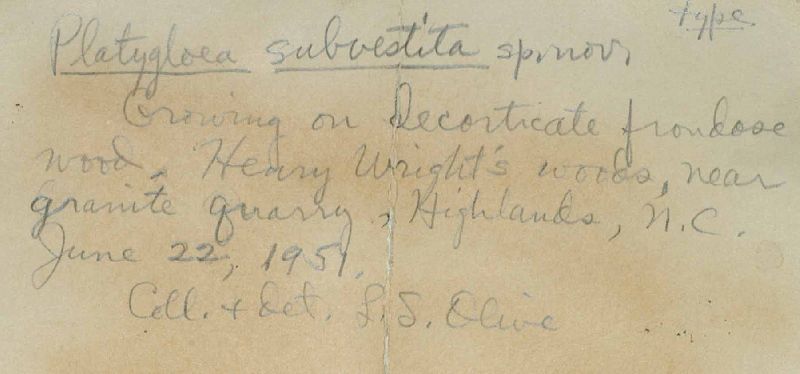 type
Platygloea subvestita sp. nov.
Growing on decorticate frondose
wood. Henry Wright's woods, near
granite quarry, Highlands, N.C.
June 22, 1951.
Coll. + det. L. S. Olive